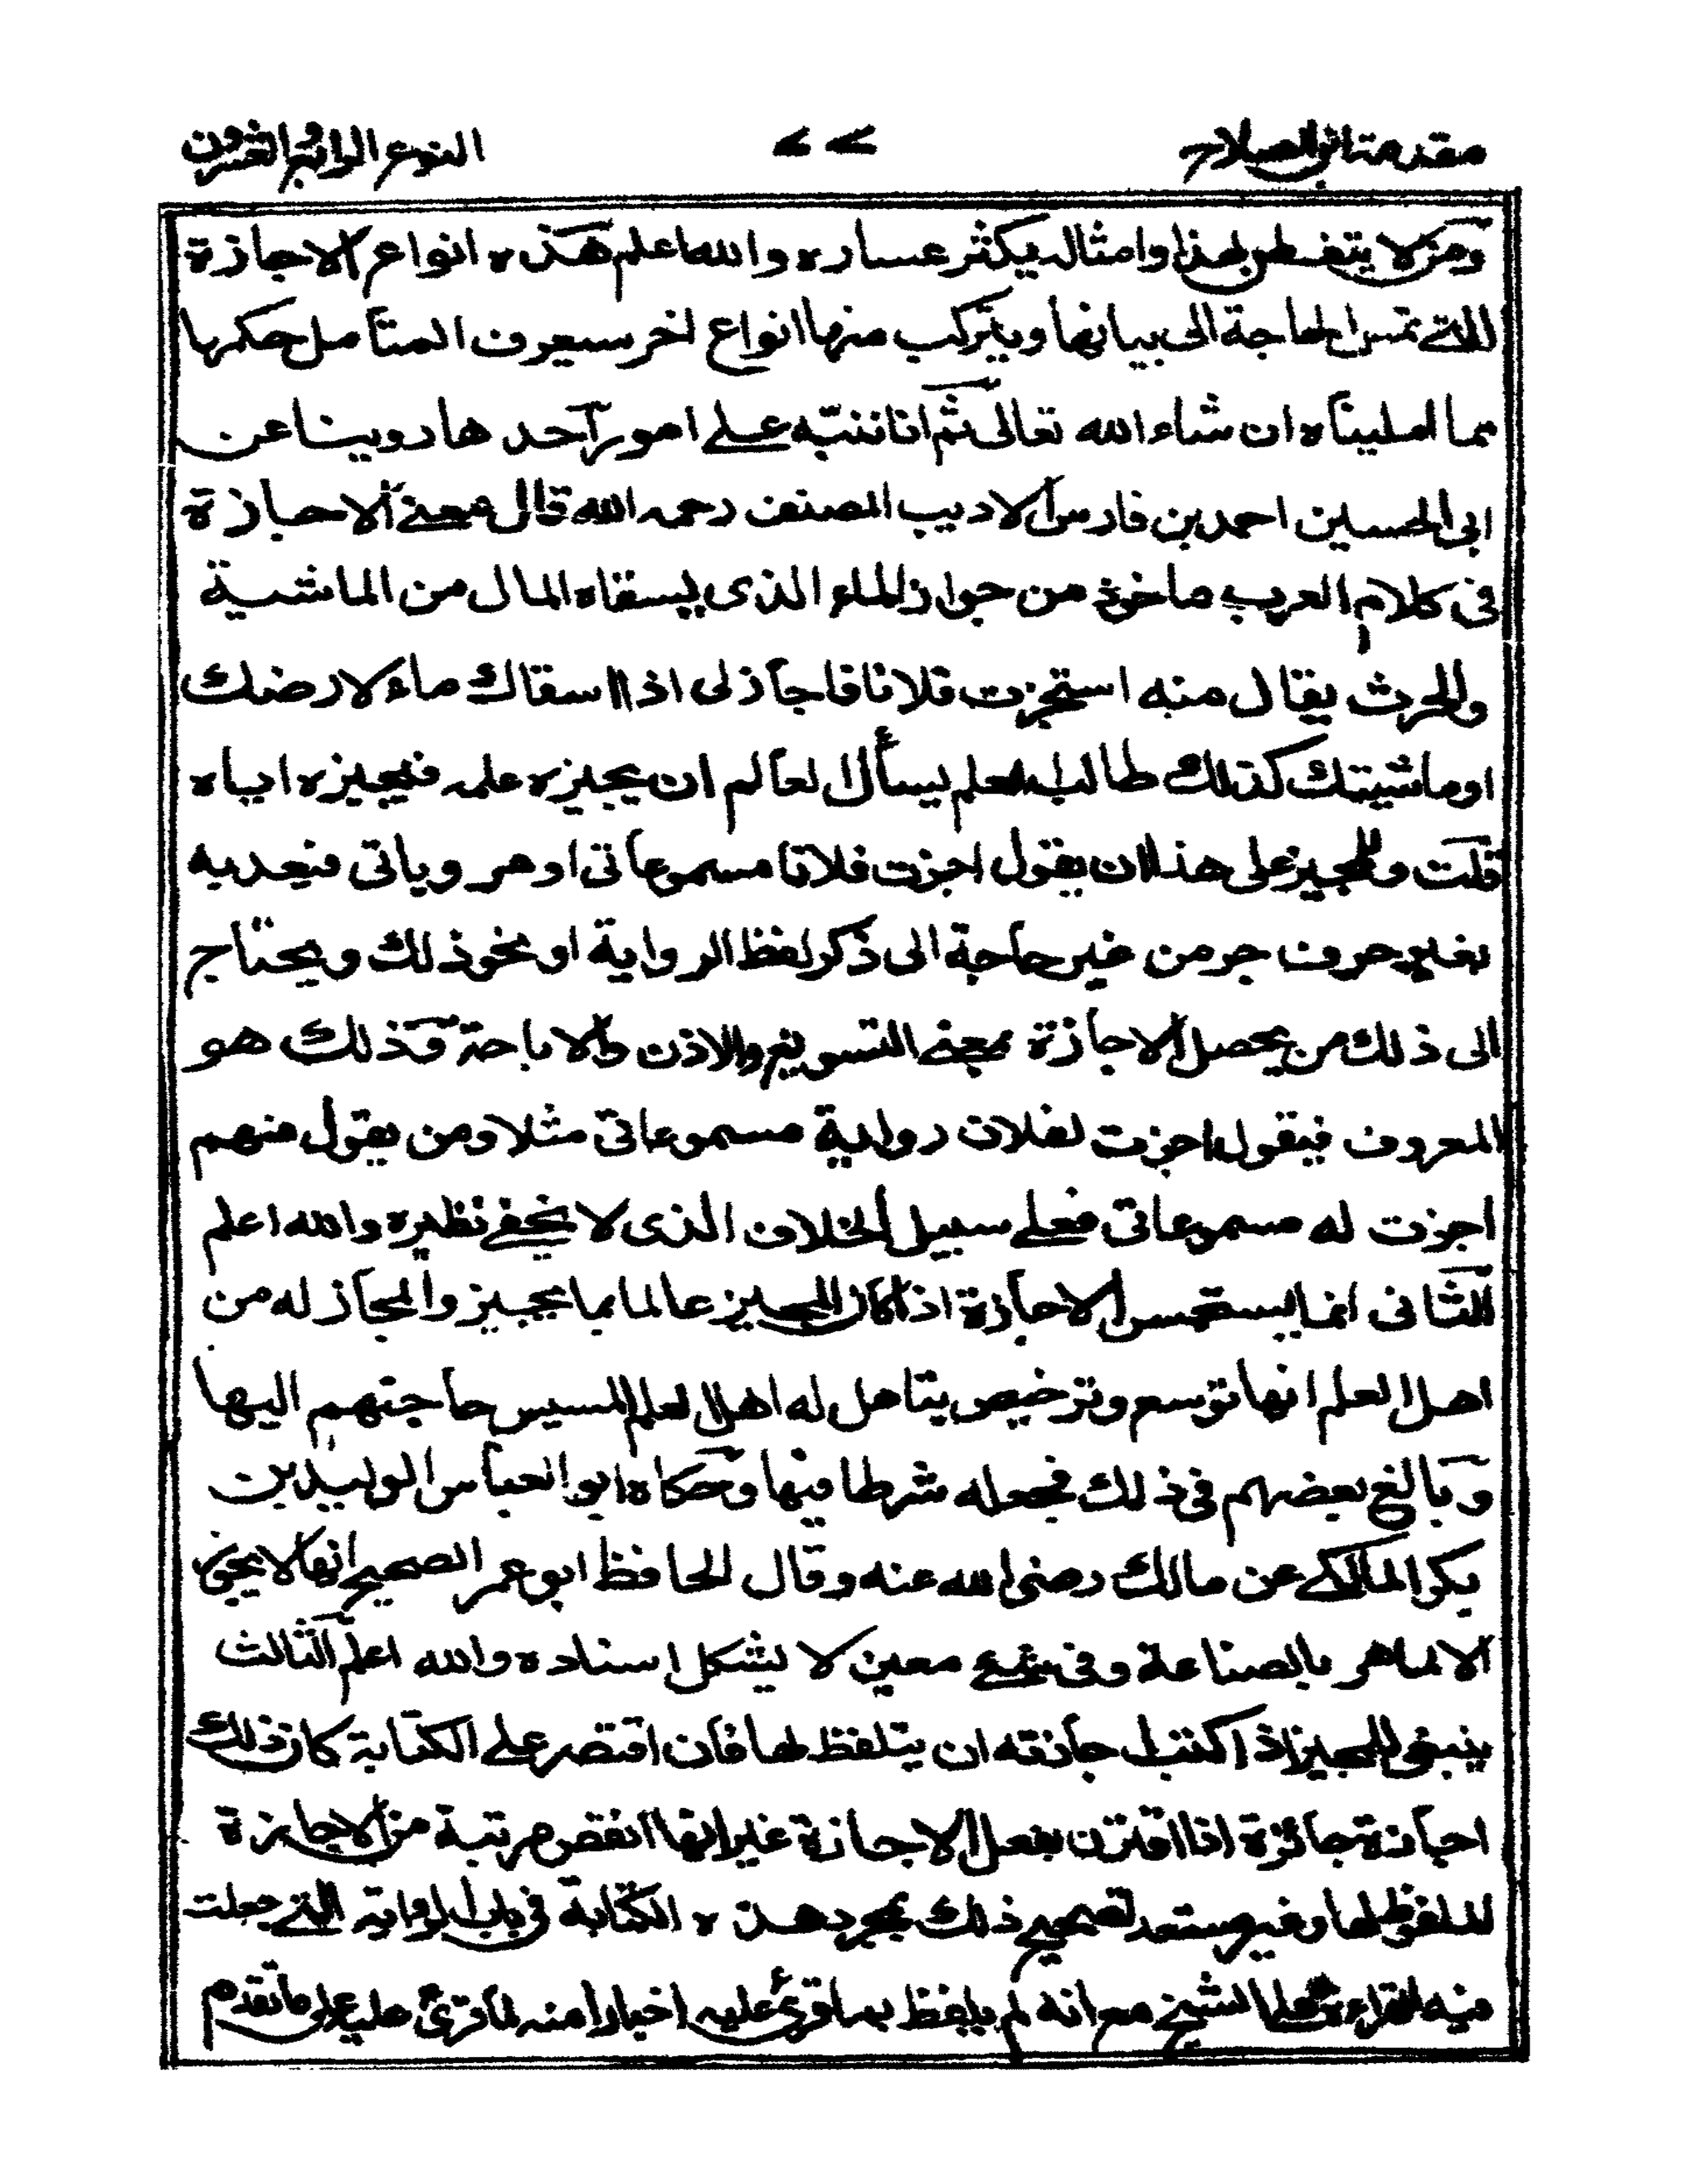 مقدمة ابن الصلاح ٧٧ النوع الرابع والعشرون
ومن لا يتفطن لهذا وامثاله يكثر عساره والله اعلم هذه انواع الاجازة
التى تمس الحاجة الى بيانها ويتركب منها انواع اخر سيعرف المتأمل حكمها
مما امليناه ان شاء الله تعالى ثم انا ننبّه على امور آحدها روينا عن
ابى الحسين احمد بن فارس الاديب المصنف رحمه الله قال معنى الاجازة
فى كلام العرب ماخوذ من جواز الماء الذى يسقاه المال من الماشية
والحرث يقال منه استجزت فلانا فاجازلى اذا اسقاك ماء لارضك
اوماشيتك كذلك طالب العلم يسأل العالم ان يجيزه علمه فيجيزه اياه
قلت وللمجيز على هذا ان يقول اجزت فلانا مسموعاتى اومروياتى فيعديه
بغير حرف جر من غير حاجة الى ذكر لفظ الرواية او نحو ذلك ويحتاج
الى ذلك من يحصل الاجازة بمعنى التسويغ والاذن والاباحة وذلك هو
المعروف فيقول اجزت لفلان رواية مسموعاتى مثلا ومن يقول منهم
اجزت له مسموعاتى فعلى سبيل الخلاف الذى لا يخفى نظيره والله اعلم
الثانى انما يستحسن الاجازة اذا كان المجيز عالما بما يجيز والمجاز له من
اهل العلم انها توسع وترخيص يتاهل له اهل العلم لمسيس حاجتهم اليها
وبالغ بعضهم فى ذلك فجعله شرطا فيها وحكاه ابو العباس الوليد بن
بكر المالكى عن مالك رضى الله عنه وقال الحافظ ابو عمر الصحيح انها لا يجوز
الا لماهر بالصناعة وفى شئ معين لا يشكل اسناده والله اعلم الثالث
ينبغى للمجيز اذا كتب اجازته ان يتلفظ بها فان اقتصر على الكتابة كان ذلك
اجازة جائزة اذا اقترن بفعل الاجازة غير انها انقص مرتبة من الاجازة
الملفوظ بها وغير مستبعد تصحيح ذلك بمجرد هذه الكتابة فى باب الرواية التى جعلت
فيه القراءة على الشيخ مع انه لم يلفظ بما قرئ عليه اخبارا منه لما قرئ عليه على ما تقدم